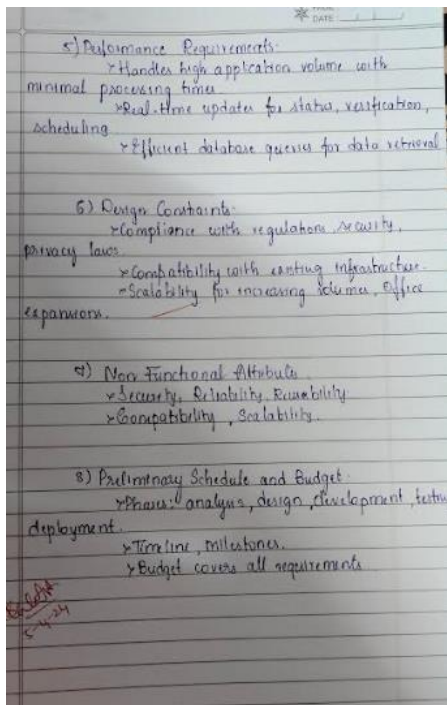 DATE
5) Performance Requirements.
> Handles high application volume with
minimal processing times
> Real-time updates for status, verification,
scheduling
> Efficient database queries for data retrieval
6) Design Constraints.
> Compliance with regulations, security,
privacy laws.
> Compatibility with existing infrastructure.
> Scalability for increasing volumes, office
expansions.
7) Non Functional Attributes
> Security, Reliability, Reusability
> Compatibility, Scalability.
8) Preliminary Schedule and Budget.
> Phases: analysis, design, development, testing
deployment.
> Timeline, milestones.
> Budget covers all requirements
5-4-24